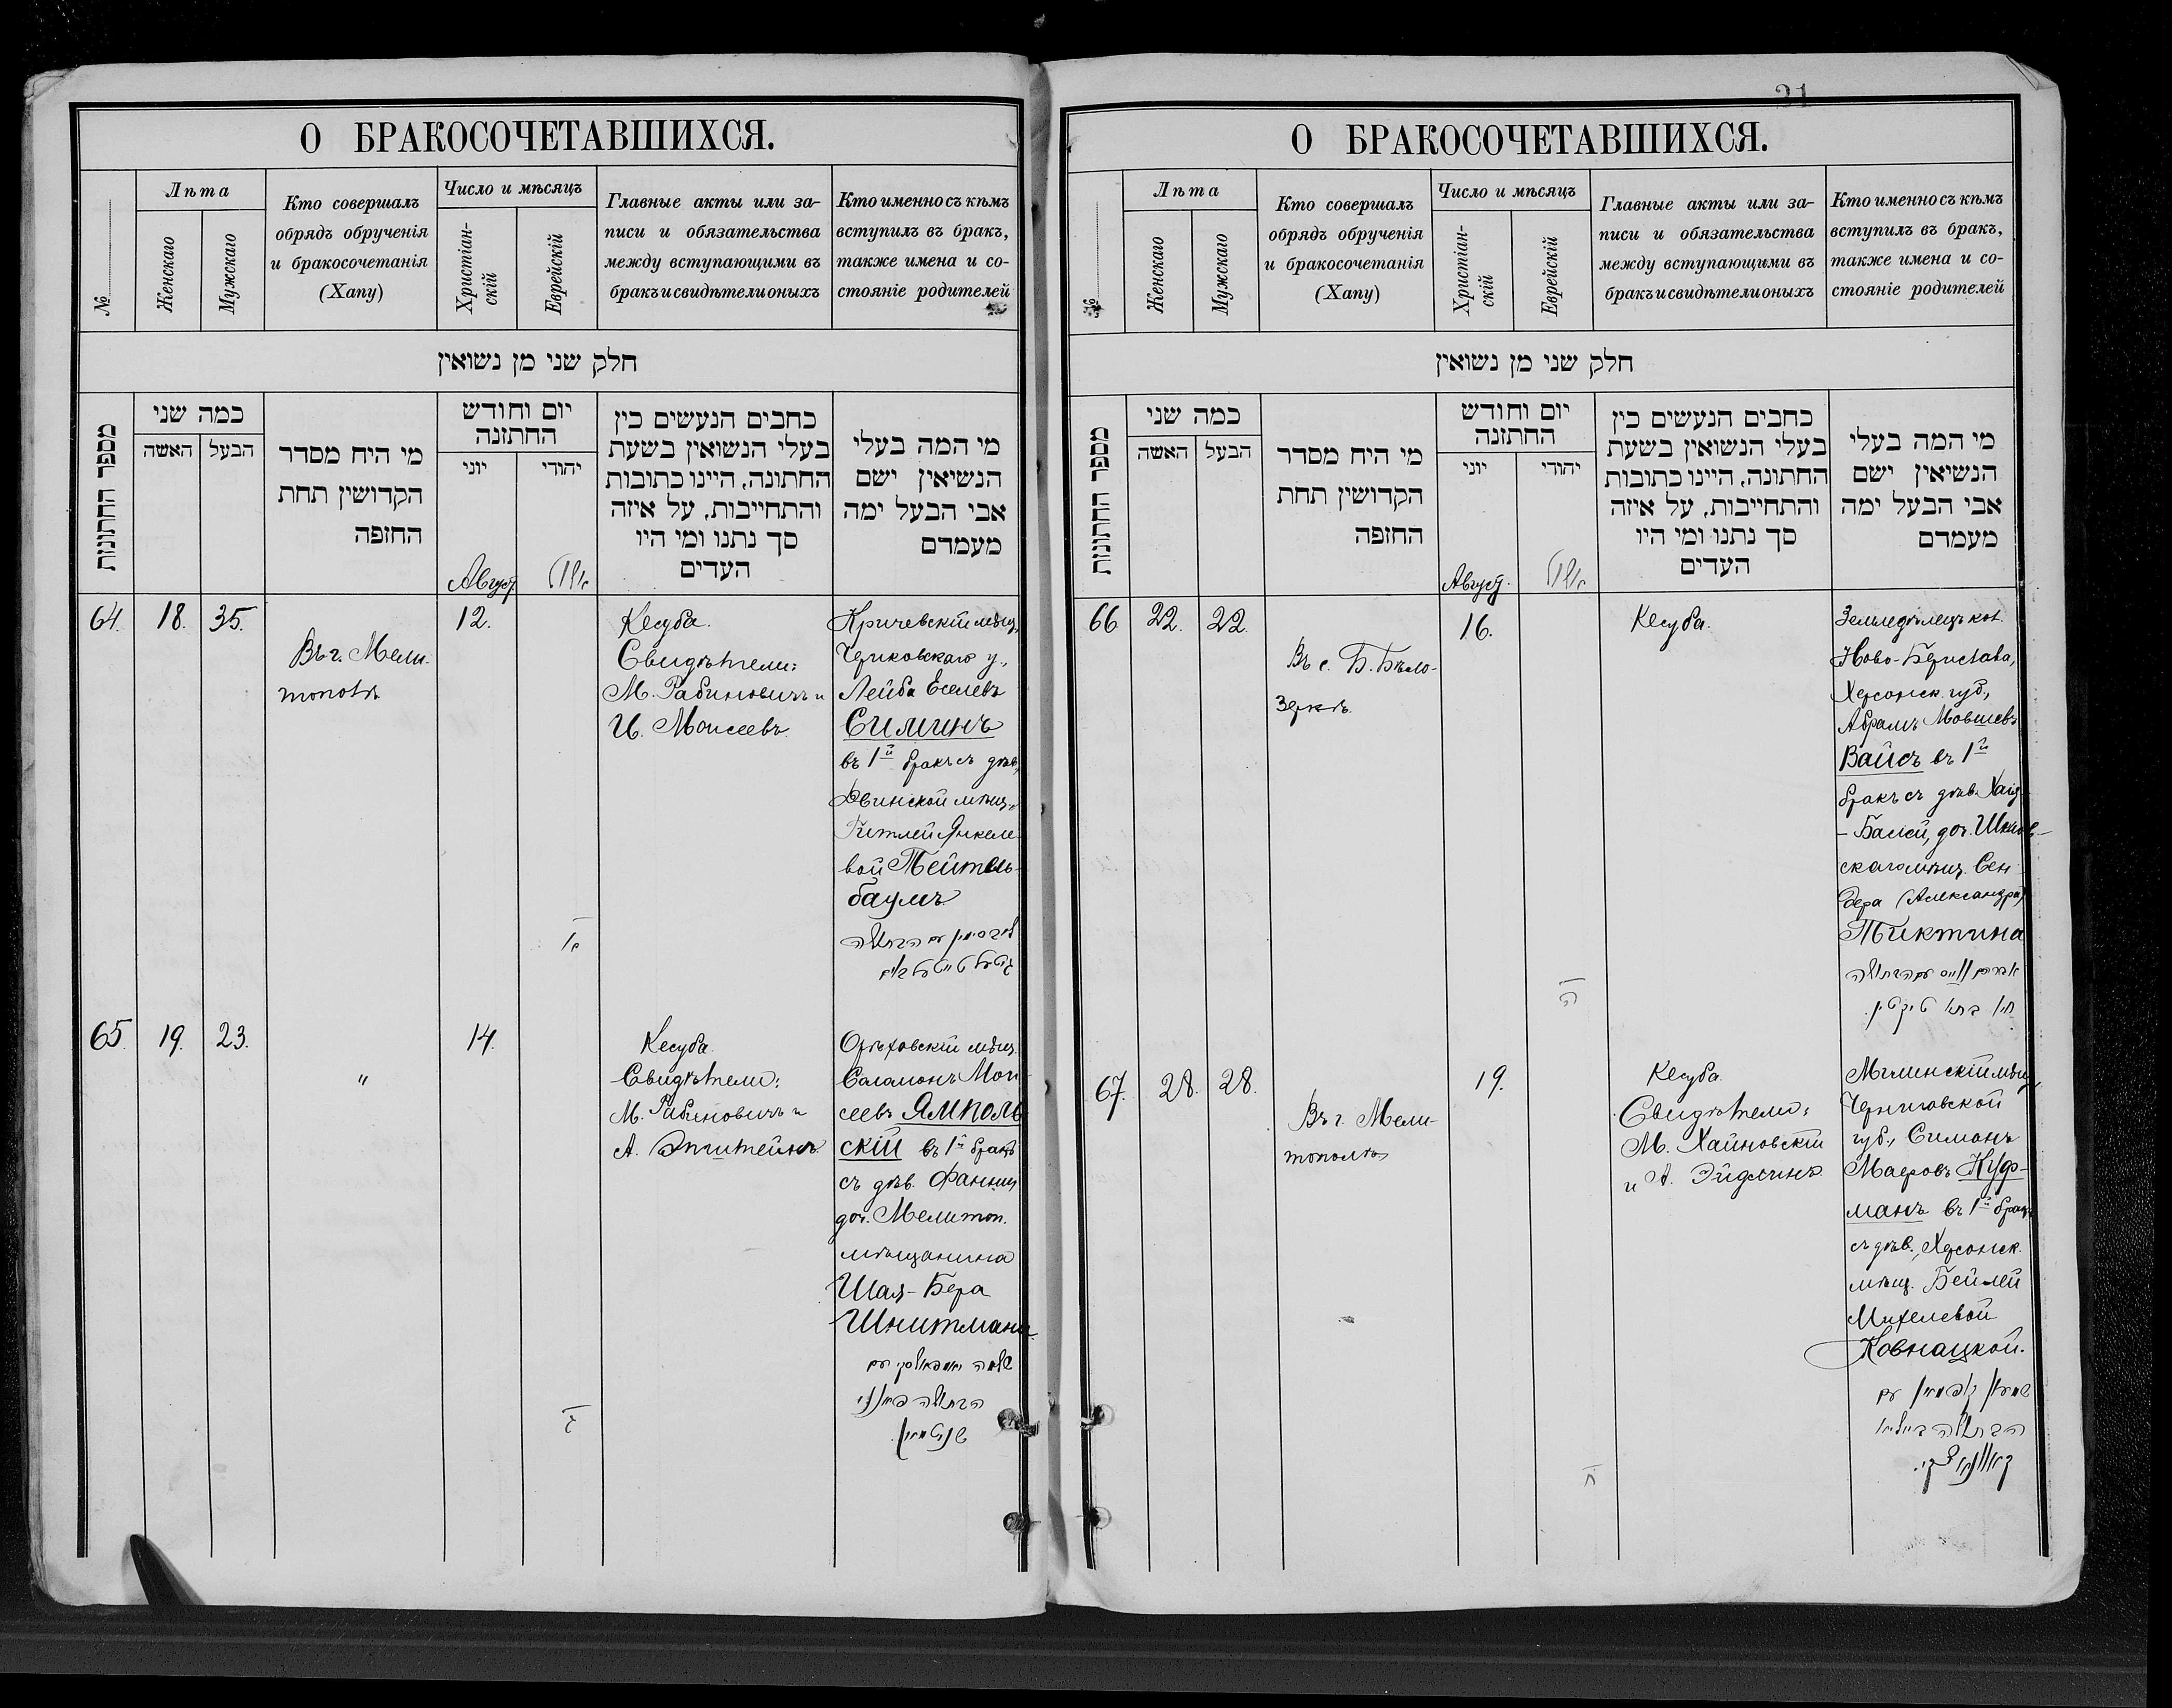 О БРАКОСОЧЕТАВШИХСЯ.
№
Лѣта
Женскаго
Мужскаго
Кто совершалъ
обрядъ обрученія
и бракосочетанія
(Хапу)
Число и мѣсяцъ
Христіан-
скій
Еврейскій
Главные акты или за-
писи и обязательства
между вступающими въ
бракъ и свидѣтели оныхъ
Кто именно съ кѣмъ
вступилъ въ бракъ,
также имена и со-
стояніе родителей
חלק שני מן נשואין
מספר החתונות
כמה שני
האשה
הבעל
מי היח מסדר
הקדושין תחת
החזפה
יום וחודש
החתזנה
יוני
יהודי
Август.
אלול
כחבים הנעשים כין
בעלי הנשואין בשעת
החתונה, היינו כתובות
והתחייבות, על איזה
סך נתנו ומי היו
העדים
מי המה בעלי
הנשיאין ישם
אבי הבעל ימה
מעמדם
64. 18. 35.
Въ г. Мели-
тополѣ
12.
יא
Кесуба.
Свидѣтели:
М. Рабиновичъ и
И. Моисеевъ.
Кричевскій мѣщ.
Чериковскаго у.,
Лейба Еселевъ
Симинъ
въ 1й бракъ съ дѣв.,
Двинской мѣщ.,
Гитлей Янкеле-
вой Тейтель-
баумъ
לייב סימין עם הבתולה
גיטל טייטעלבוים
65. 19. 23.
"
14.
יג
Кесуба.
Свидѣтели:
М. Рабиновичъ и
А. Эпштейнъ.
Орѣховскій мѣщ.
Саламонъ Мои-
сеевъ Ямполь-
скій въ 1й бракъ
съ дѣв. Фанни,
доч. Мелитоп.
мѣщанина
Шая-Бера
Шнитмана
שלמה יאמפאלסקי עם
הבתולה פייאני
שניטמאן.
21
О БРАКОСОЧЕТАВШИХСЯ.
№
Лѣта
Женскаго
Мужскаго
Кто совершалъ
обрядъ обрученія
и бракосочетанія
(Хапу)
Число и мѣсяцъ
Христіан-
скій
Еврейскій
Главные акты или за-
писи и обязательства
между вступающими въ
бракъ и свидѣтели оныхъ
Кто именно съ кѣмъ
вступилъ въ бракъ,
также имена и со-
стояніе родителей
חלק שני מן נשואין
מספר החתונות
כמה שני
האשה
הבעל
מי היח מסדר
הקדושין תחת
החזפה
יום וחודש
החתזנה
יוני
יהודי
Август.
אלול
כחבים הנעשים כין
בעלי הנשואין בשעת
החתונה, היינו כתובות
והתחייבות, על איזה
סך נתנו ומי היו
העדים
מי המה בעלי
הנשיאין ישם
אבי הבעל ימה
מעמדם
66 22. 22.
Въ с. Б. Бѣло-
зеркѣ.
16.
Кесуба.
Земледѣлецъ кол.
Ново-Берислава,
Херсонск. губ.,
Абрамъ Мовшевъ
Вайсъ въ 1й
бракъ съ дѣв. Хая-
-Басей, доч. Шклов-
скаго мѣщ. Сен-
дера (Александра)
Тиктина
אברהם ווייס עם הבתולה
חיו באסי טיקטין.
67. 28. 28.
Въ г. Мели-
тополѣ
19.
Кесуба.
Свидѣтели:
М. Хайновскій
и А. Эйдлинъ
Мглинскій мѣщ.,
Черниговской
губ., Симонъ
Маеровъ Куф-
манъ въ 1й бракъ
съ дѣв., Херсонск.
мѣщ. Бейлей
Михелевой
Ковнацкой.
שמעון קופמאן עם
הבתולה ביילא
קאוונאצקי.